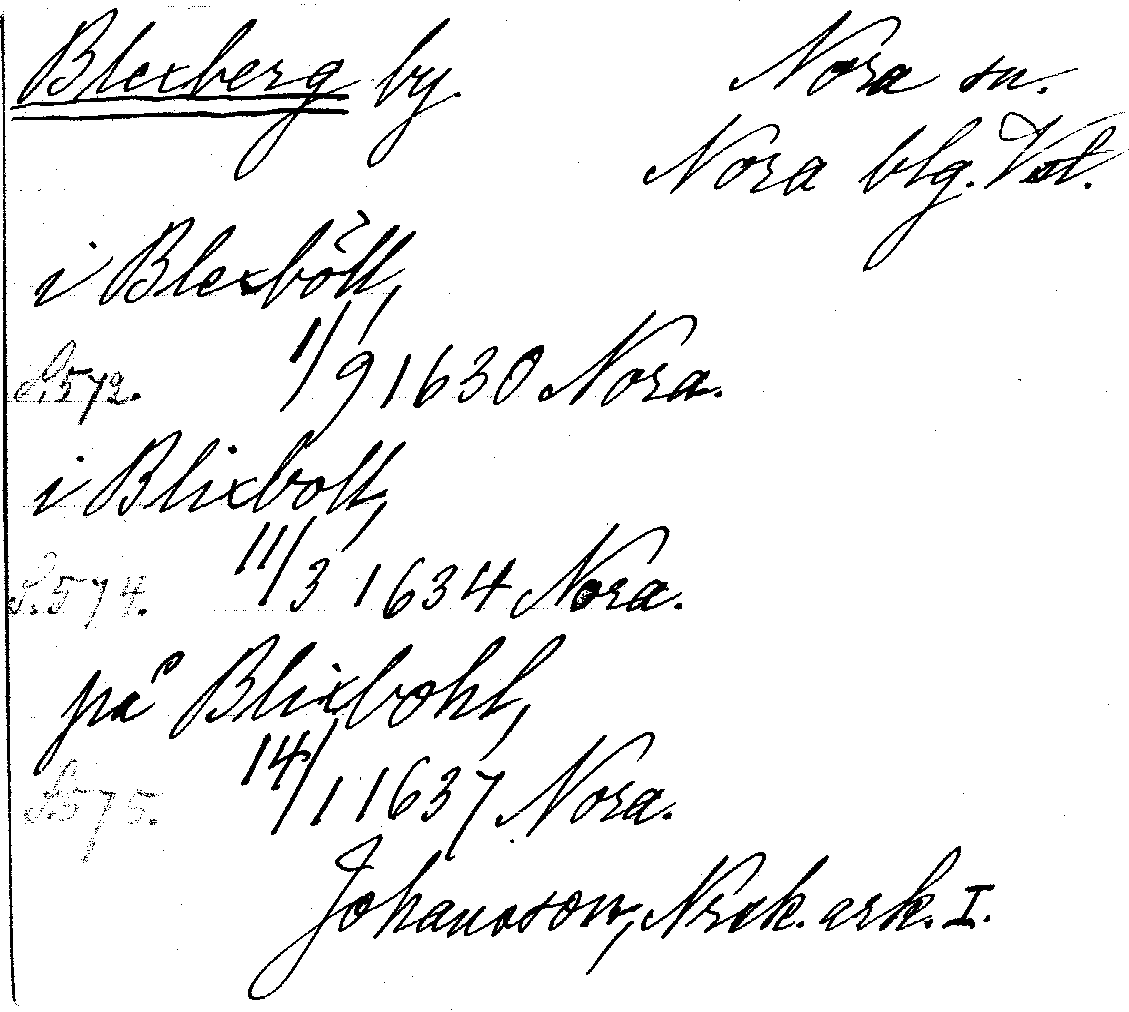 Blexberg by. Nora sn.
Nora blg. Vstl.
i Blexböll,
S.572. 1/9 1630 Nora.
i Blixboll,
S.574. 11/3 1634 Nora.
på Blixbohl,
S.575. 14/1 1637 Nora.
Johansson, Nrck. ark. I.